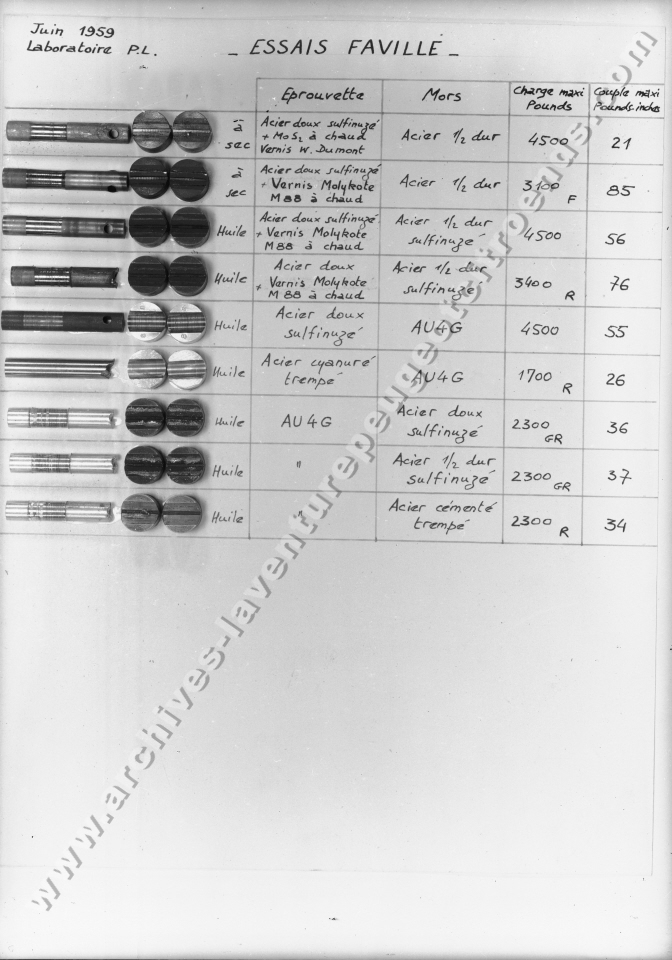 Juin 1959
Laboratoire P.L.
_ ESSAIS FAVILLE _
Eprouvette Mors Charge maxi Pounds Couple maxi Pounds.inches
à sec
Acier doux sulfinuzé
+ MoS2 à chaud
Vernis W. Dumont
Acier 1/2 dur
4500
21
à sec
Acier doux sulfinuzé
+ Vernis Molykote
M88 à chaud
Acier 1/2 dur
3100 F
85
Huile
Acier doux sulfinuzé
+ Vernis Molykote
M88 à chaud
Acier 1/2 dur
sulfinuzé
4500
56
Huile
Acier doux
+ Vernis Molykote
M88 à chaud
Acier 1/2 dur
sulfinuzé
3400 R
76
Huile
Acier doux
sulfinuzé
AU4G
4500
55
Huile
Acier cyanuré
trempé
AU4G
1700 R
26
Huile
AU4G
Acier doux
sulfinuzé
2300 GR
36
Huile
"
Acier 1/2 dur
sulfinuzé
2300 GR
37
Huile
"
Acier cémenté
trempé
2300 R
34